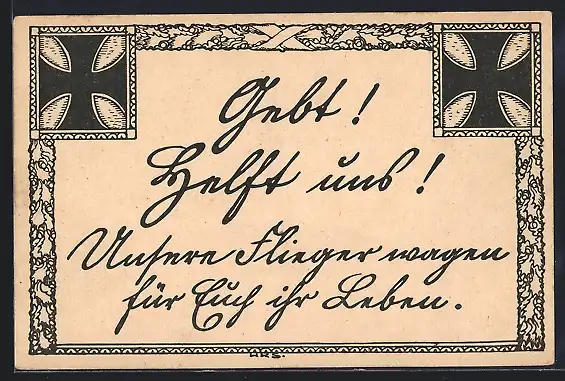 Gebt!
Helft uns!
Unsere Flieger wagen
für Euch ihr Leben.